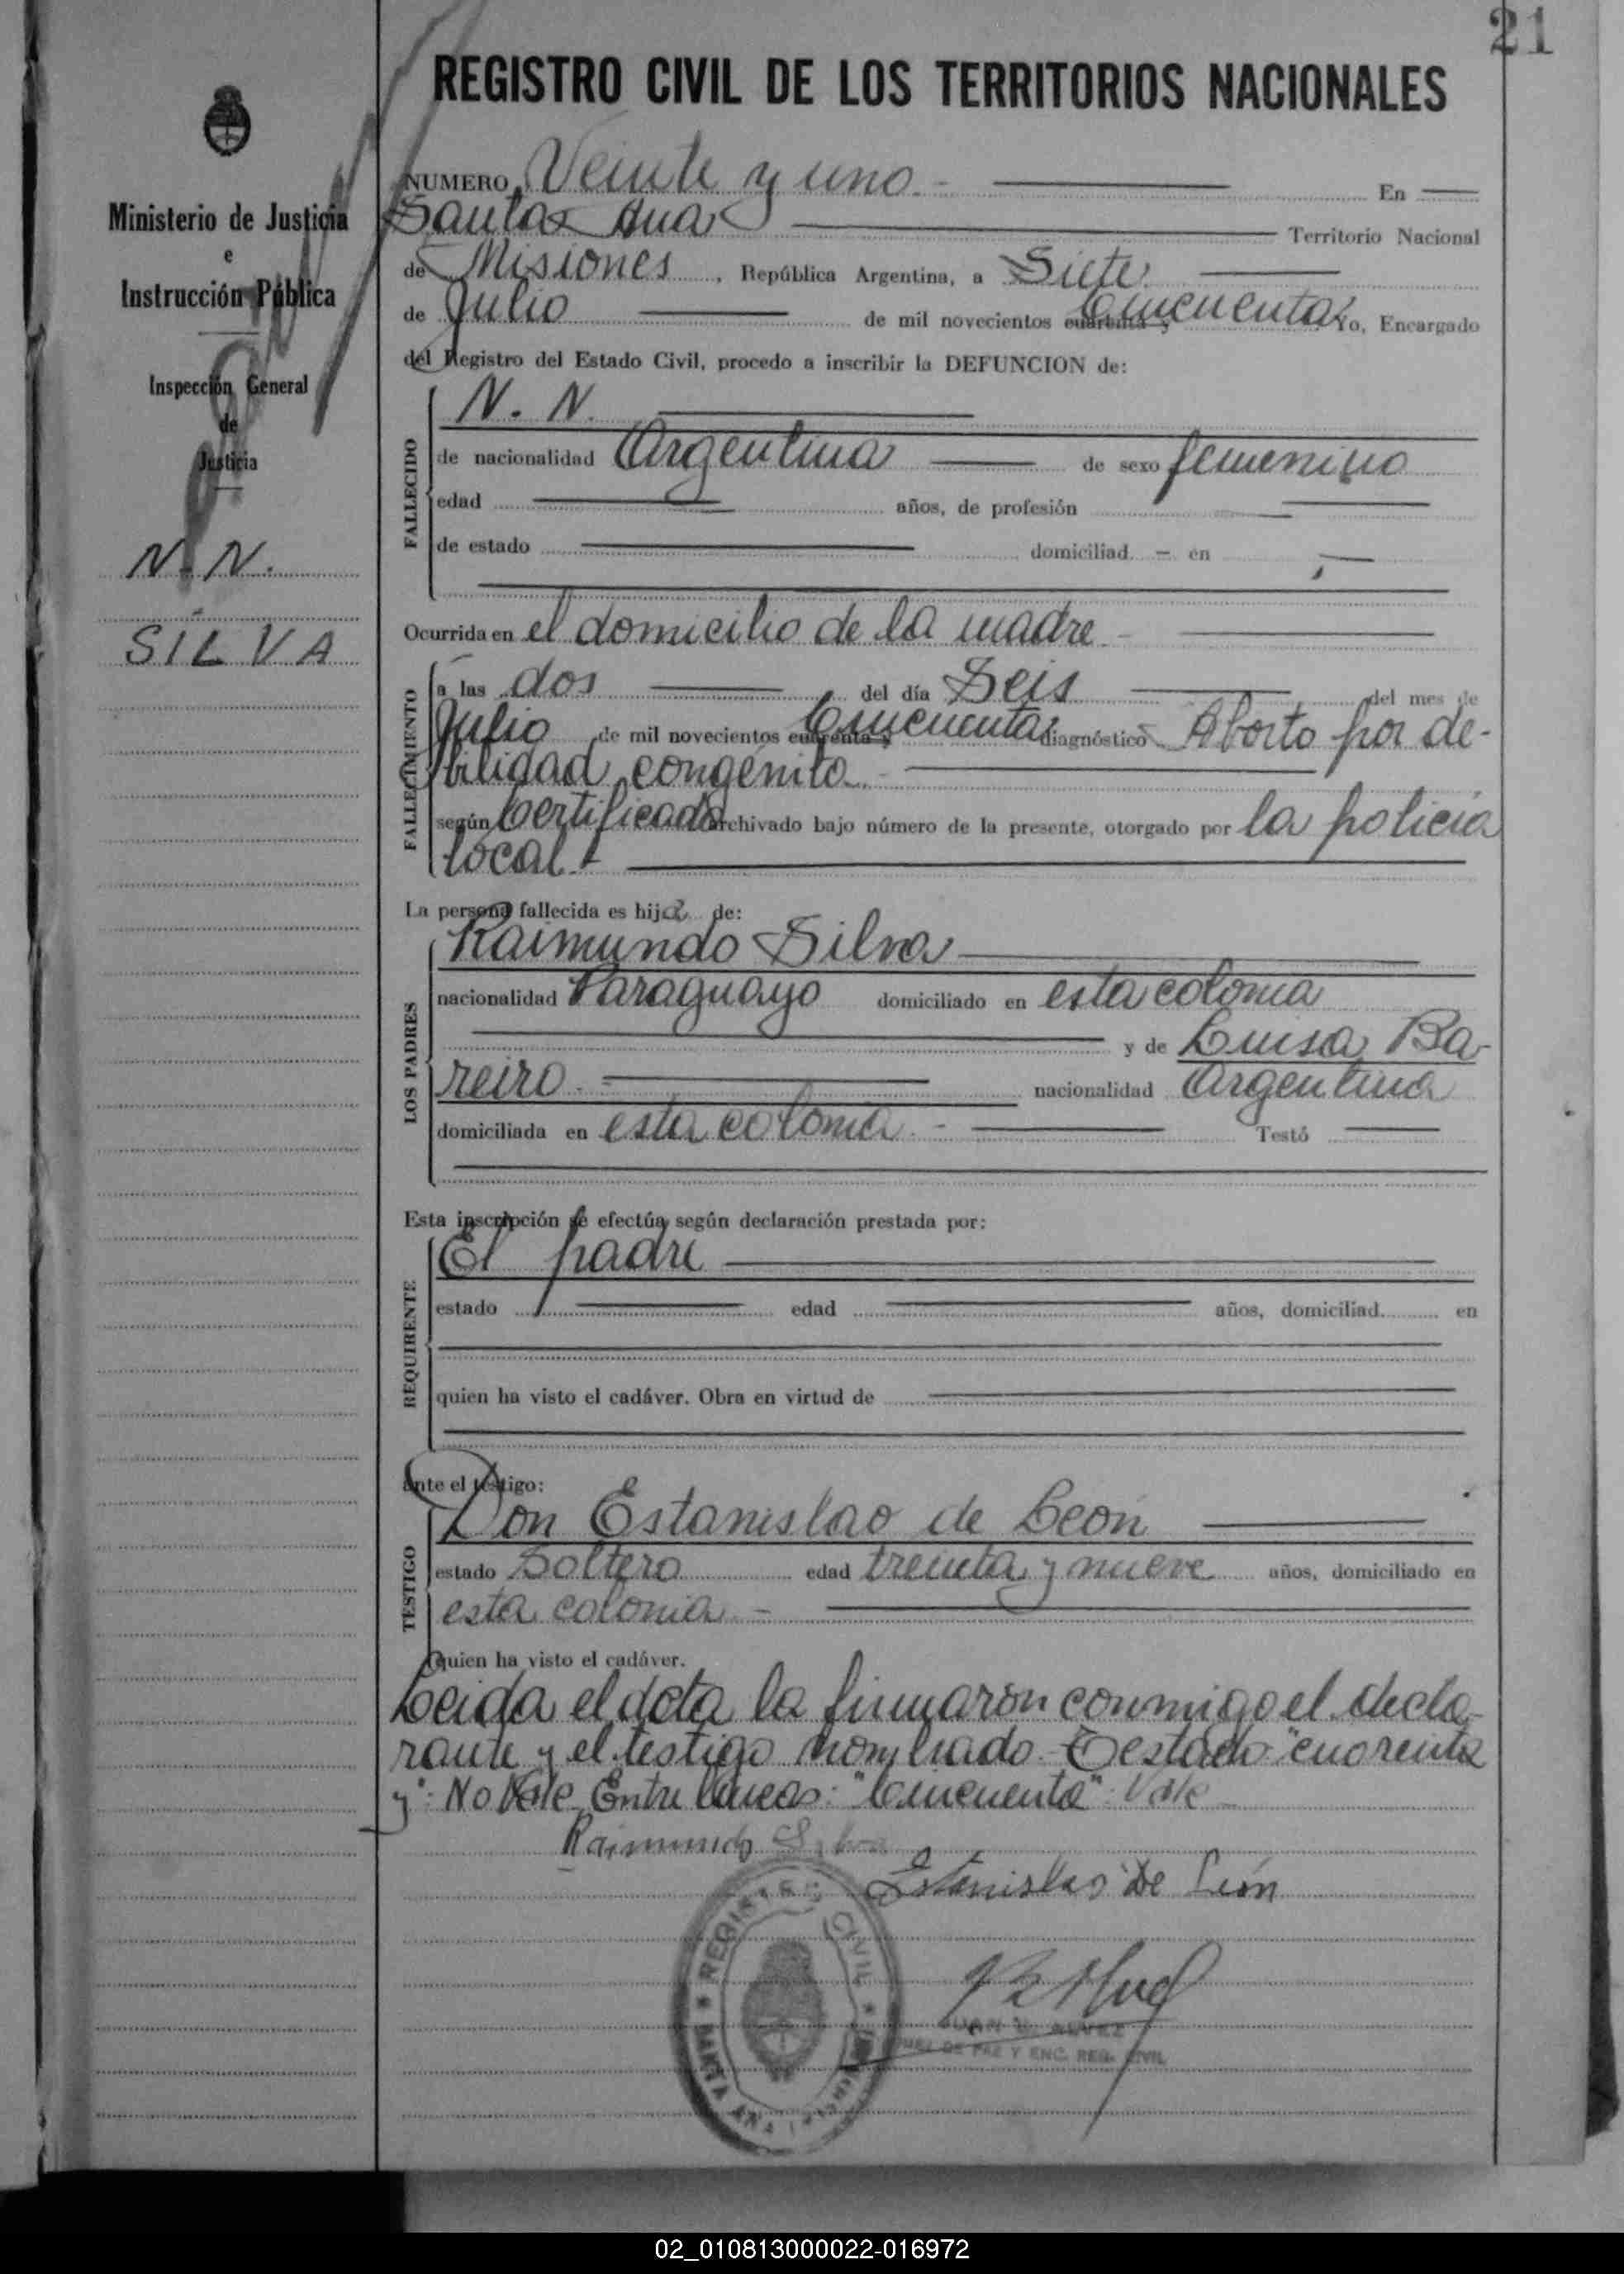 21
REGISTRO CIVIL DE LOS TERRITORIOS NACIONALES
Ministerio de Justicia
e
Instrucción Pública
Inspección General
de
Justicia
N. N.
SILVA
NUMERO Veinte y uno.- En
Santa Ana Territorio Nacional
de Misiones, República Argentina, a Siete
de Julio de mil novecientos cuarenta y Cincuenta Yo, Encargado
del Registro del Estado Civil, procedo a inscribir la DEFUNCION de:
FALLECIDO
N. N.
de nacionalidad Argentina de sexo femenino
edad años, de profesión
de estado domiciliad - en
Ocurrida en el domicilio de la madre -
FALLECIMIENTO
a las dos del día Seis del mes de
Julio de mil novecientos cuarenta y Cincuenta diagnóstico Aborto por de-
bilidad congénito -
según Certificado archivado bajo número de la presente, otorgado por la policía
local.
La persona fallecida es hija de:
LOS PADRES
Raimundo Silva
nacionalidad Paraguayo domiciliado en esta colonia
y de Luisa Ba-
reiro - nacionalidad Argentina
domiciliada en esta colonia - Testó
Esta inscripción se efectúa según declaración prestada por:
REQUIRENTE
El padre
estado edad años, domiciliad en
quien ha visto el cadáver. Obra en virtud de
ante el testigo:
TESTIGO
Don Estanislao de León
estado Soltero edad treinta y nueve años, domiciliado en
esta colonia -
quien ha visto el cadáver.
Leida el acta la firmaron conmigo el decla-
rante y el testigo nombrado - Testado "cuarenta
y": No Vale. Entre líneas: "Cincuenta" Vale
Raimundo Silva
Estanislao De León
REGISTRO CIVIL
SANTA ANA
JUEZ DE PAZ Y ENC. REG. CIVIL
02_010813000022-016972